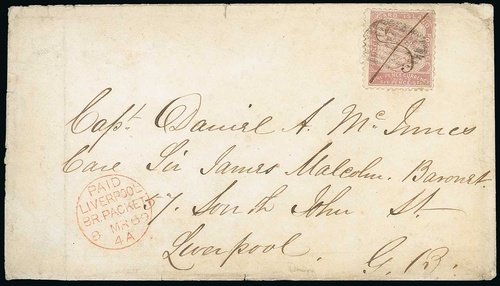 Capt Daniel A. McInnes
Care Sir James Malcolm. Baronet.
57. South John St.
Liverpool. G. B.
PAID
LIVERPOOL
BR. PACKET
8 MR 69
4A